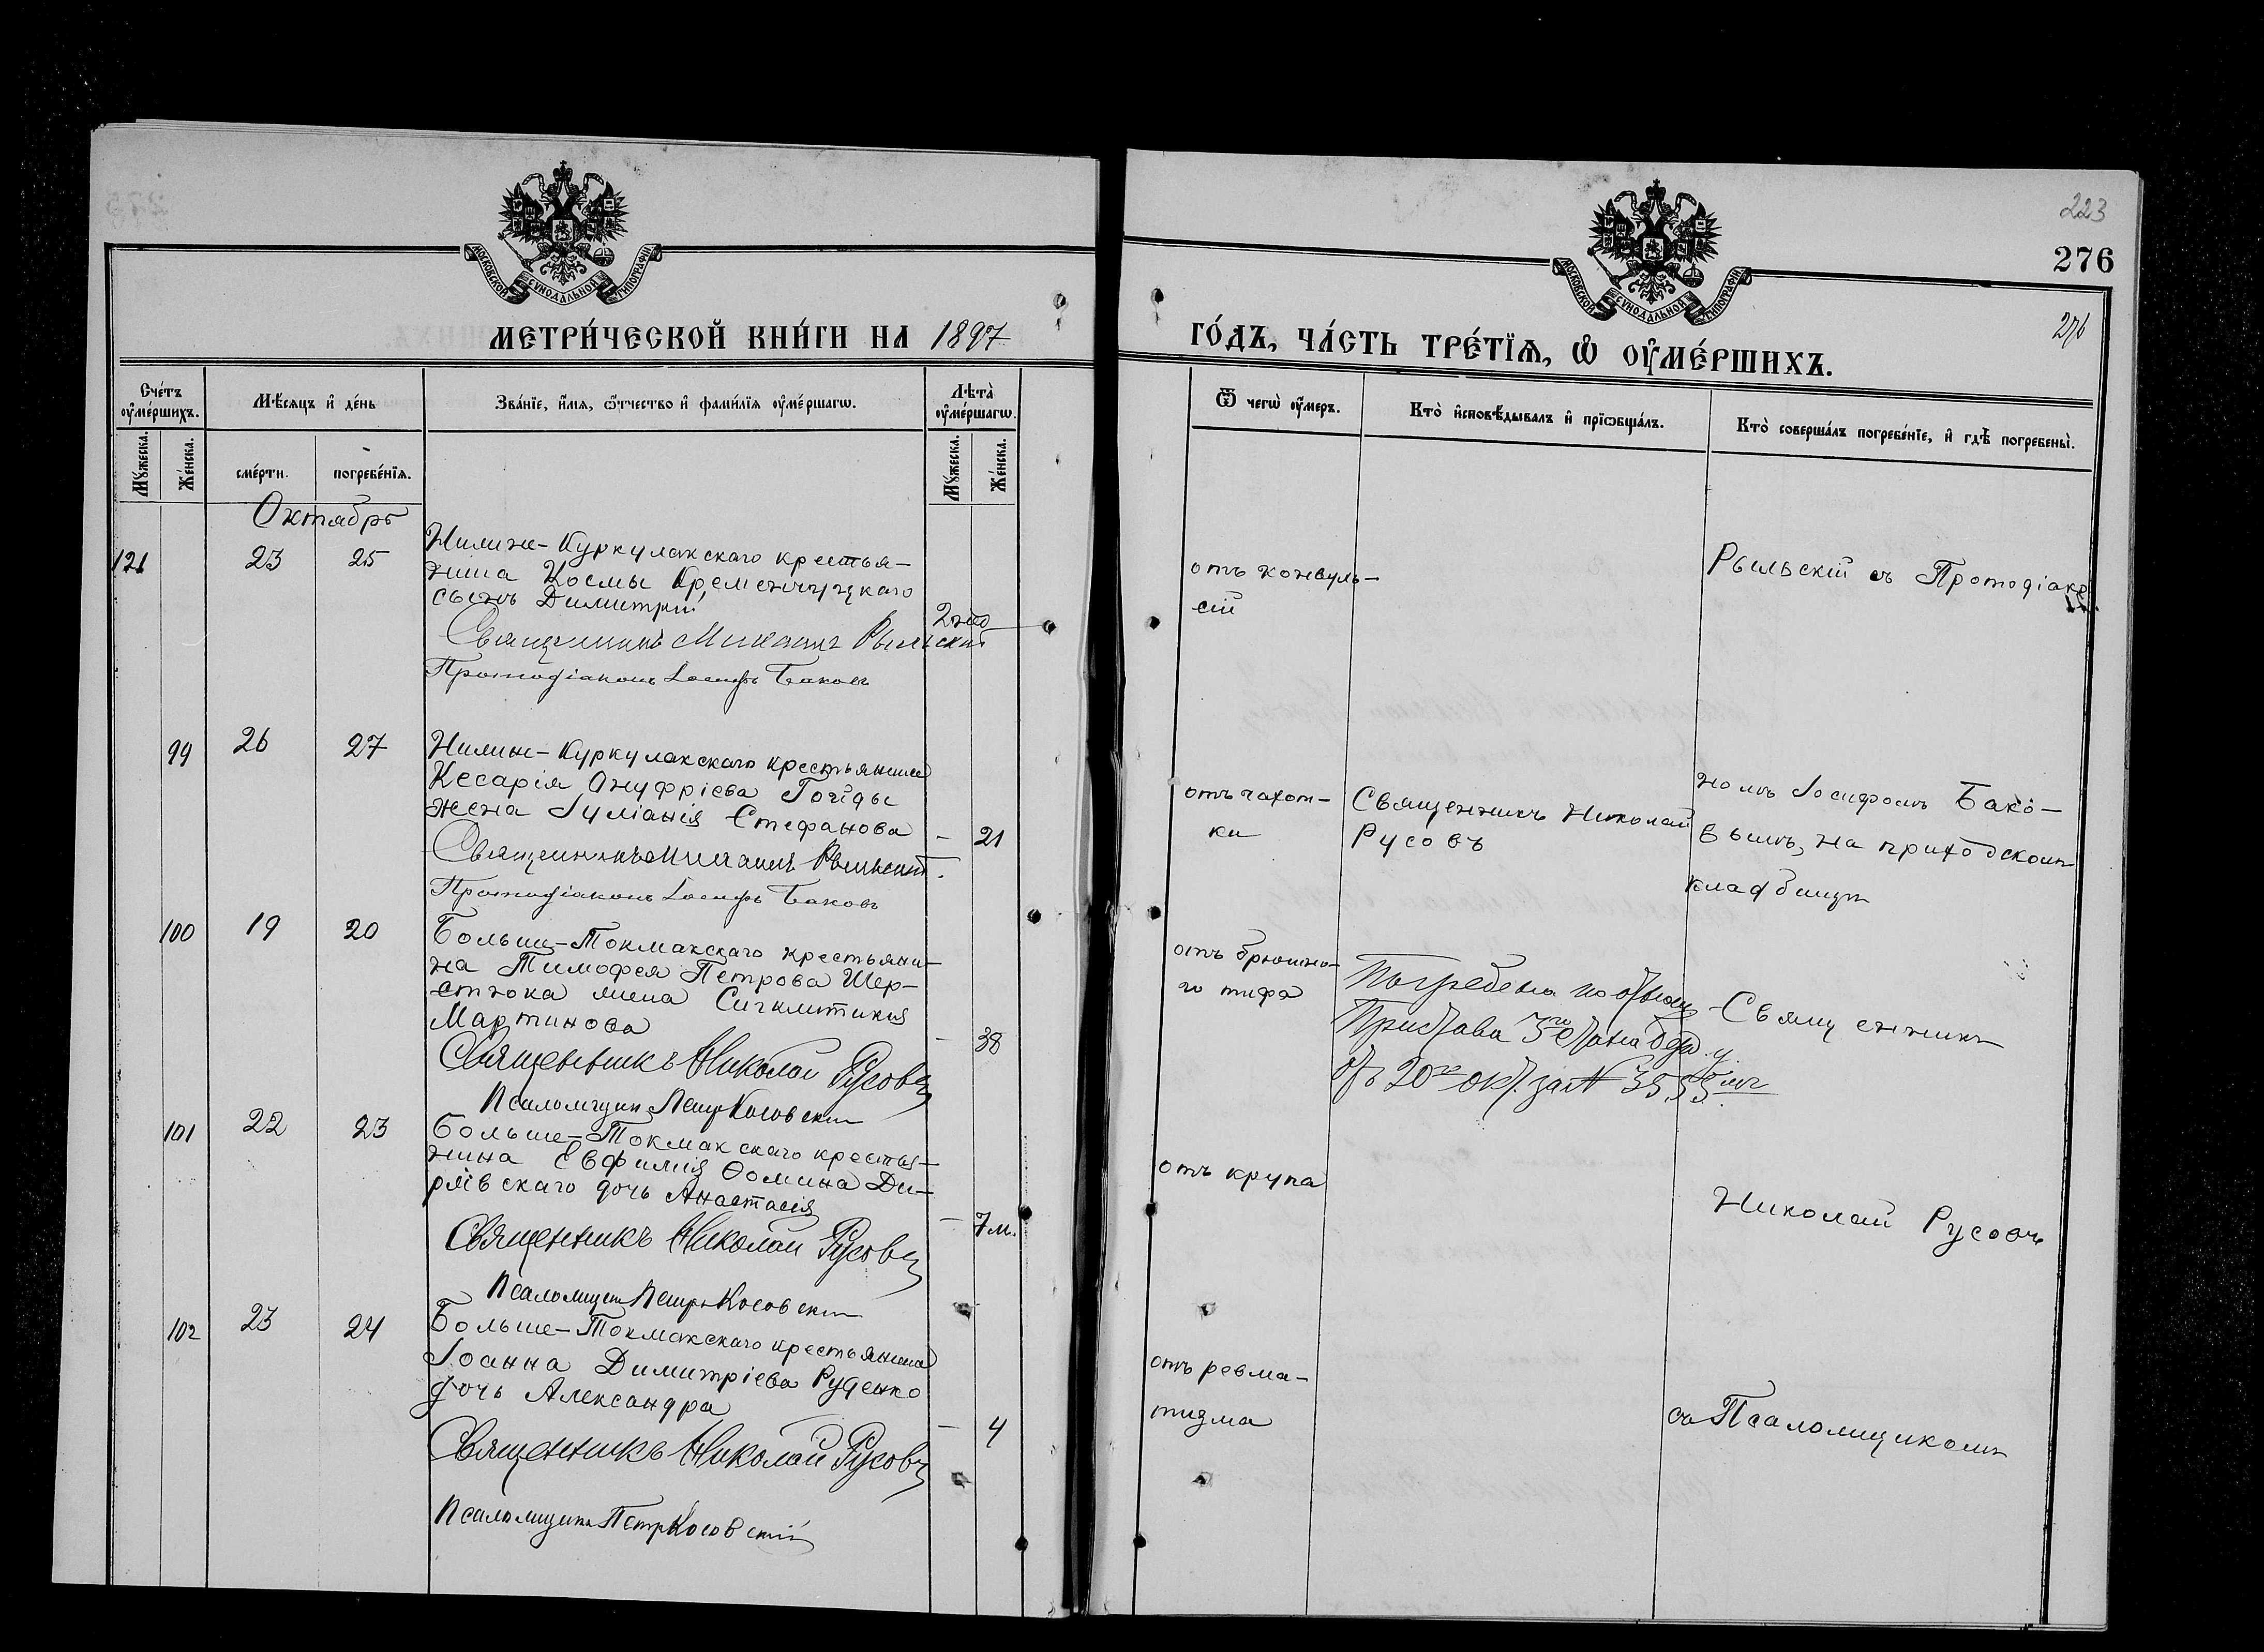 МОСКОВСКОЙ СѴНОДАЛЬНОЙ ТИПОГРАФІИ
МЕТРИ́ЧЕСКОЙ КНИ́ГИ НА 1897
Сче́тъ оу҆ме́ршихъ.
Мѣ́сяцъ и҆ де́нь
Зва́нїе, и҆́мя, ѻ҆́тчество и҆ фами́лїя оу҆ме́ршагѡ.
Лѣта̀ оу҆ме́ршагѡ.
Мꙋ́жеска.
Же́нска.
сме́рти.
погребе́нїя.
Мꙋ́жеска.
Же́нска.
Октябрь
121 23 25
Нилиж-Куркулакскаго крестья-
нина Космы Кременчуцкаго
сынъ Димитрій
Священникъ Михаилъ Рыльскій
Протодіаконъ Іосифъ Баковъ
99 26 27
Нилиж-Куркулакскаго крестьянина
Кесарія Онуфріева Гойды
жена Іуліанія Стефанова – 21
Священникъ Михаилъ Рыльскій.
Протодіаконъ Іосифъ Баковъ
100 19 20
Больше-Токмакскаго крестьяни-
на Тимофея Петрова Шер-
стюка жена Сигклитикія
Мартинова – 38
Священникъ Николай Русовъ
Псаломщик Петръ Косовскій
101 22 23
Больше-Токмакскаго крестья-
нина Евфимія Ѳомина Ди-
рявскаго дочь Анастасія – 7 м.
Священникъ Николай Русовъ
Псаломщикъ Петръ Косовскій
102 23 24
Больше-Токмакскаго крестьянина
Іоанна Димитріева Руденко
дочь Александра – 4
Священникъ Николай Русовъ
Псаломщикъ Петръ Косовскій
МОСКОВСКОЙ СѴНОДАЛЬНОЙ ТИПОГРАФІИ
223
276
276
ГО́ДЪ, ЧА́СТЬ ТРЕ́ТЇѦ, Ѽ ОУ҆МЕ́РШИХЪ.
Ѿ чегѡ̀ оу҆́меръ.
Кто̀ и҆сповѣ́дывалъ и҆ прїѡбща́лъ.
Кто̀ соверша́лъ погребе́нїе, и҆ гдѣ̀ погребены̀.
отъ конвуль-
сій
Рыльскій съ Протодіако
отъ чахот-
ки
Священникъ Николай
Русовъ
номъ Іосифомъ Бако-
вымъ, на приходскомъ
кладбищѣ
отъ брюшно-
го тифа
Погребена по отнош
Пристава 3го стана Берд. у.
отъ 20го окт. за № 3555
Священникъ
отъ крупа
Николай Русовъ
отъ ревма-
тизма
съ Псаломщикомъ